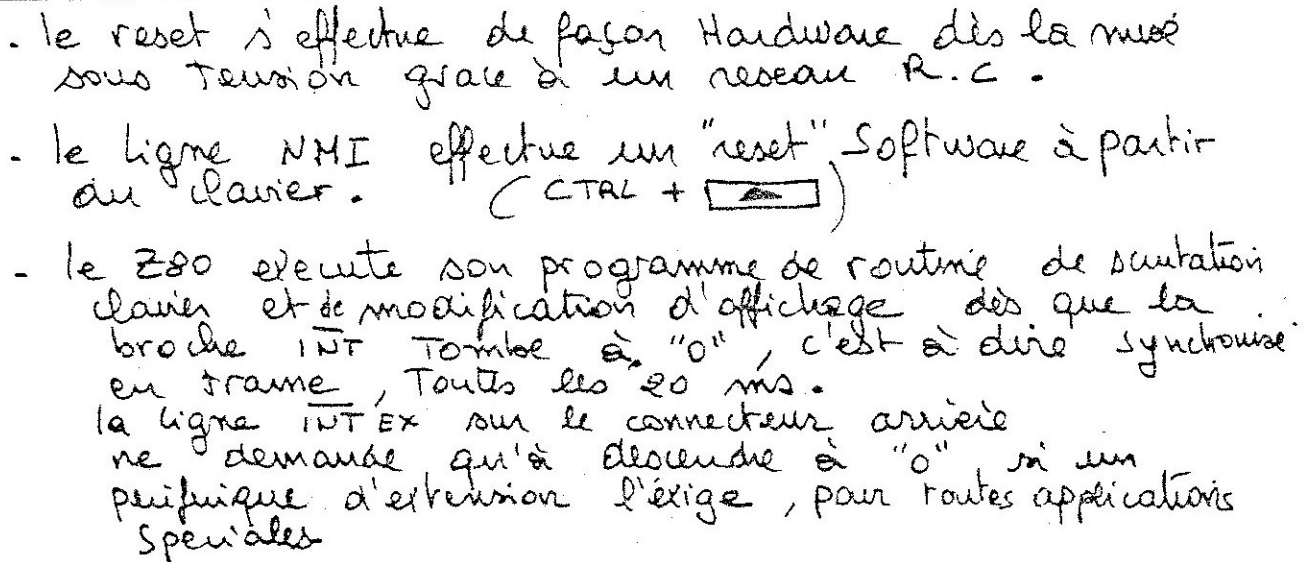 - le reset s'effectue de façon Hardware dès la mise
sous Tension grace à un reseau R.C.
- le ligne NMI effectue un "reset" Software à partir
du clavier. (CTRL + ▲)
- le Z80 execute son programme de routine de scrutation
clavier et de modification d'affichage dès que la
broche I̅N̅T̅ Tombe à "0", c'est à dire synchonisé
en trame, Toutes les 20 ms.
la ligne I̅N̅T̅ EX sur le connecteur arrière
ne demande qu'à descendre à "0" si un
periferique d'extension l'éxige, pour toutes applications
Speciales